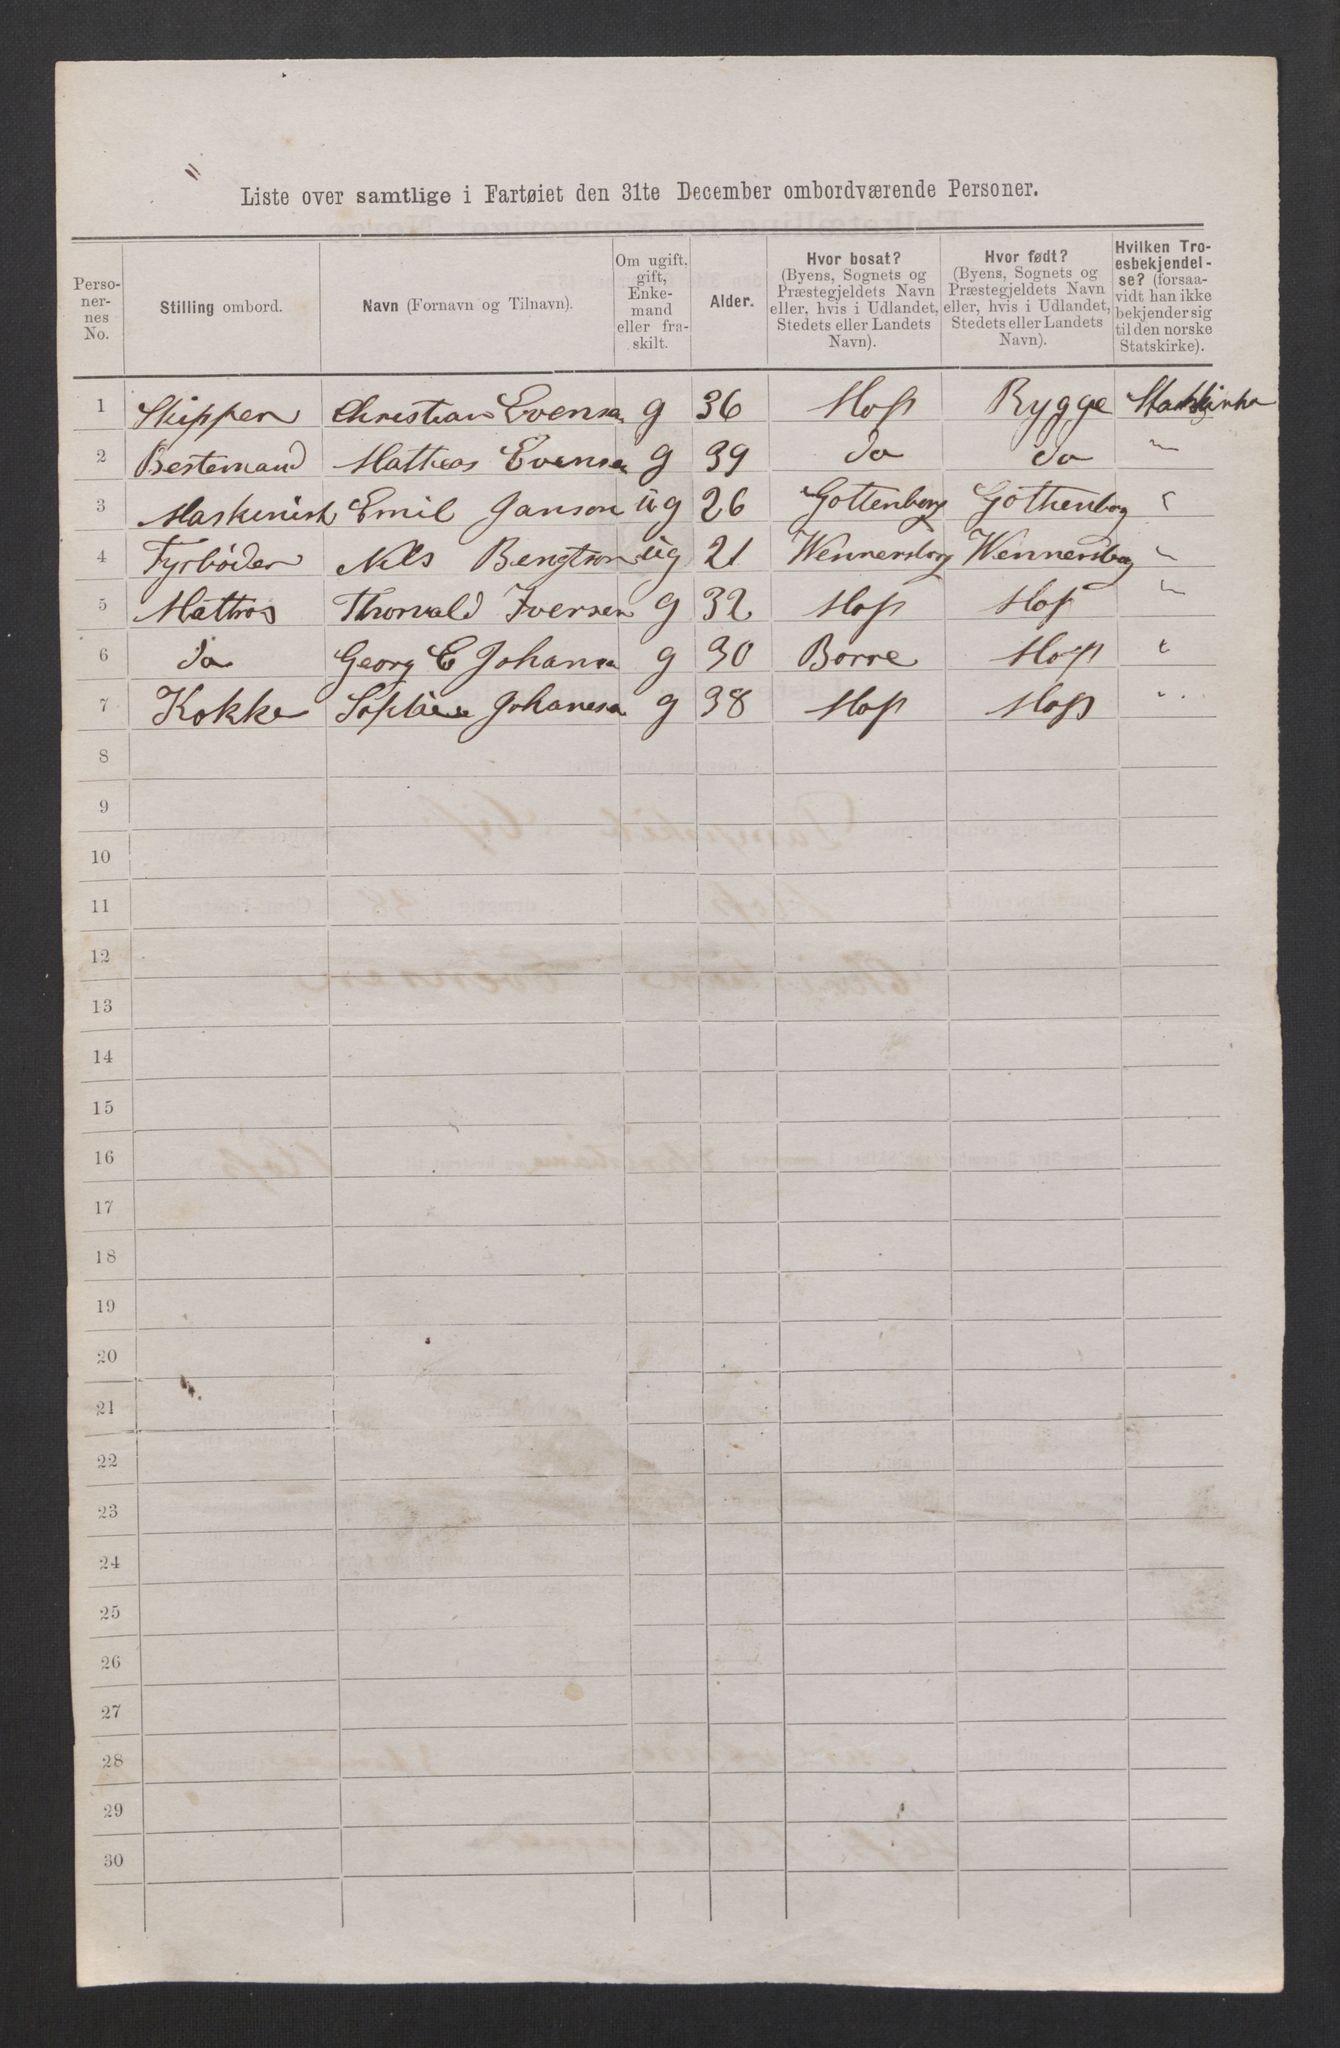 Liste over samtlige i Fartøiet den 31te December ombordværende Personer.
Perso-
ner-
nes
No.
Stilling ombord.
Navn (Fornavn og Tilnavn).
Om ugift,
gift,
Enke-
mand
eller fra-
skilt.
Alder.
Hvor bosat?
(Byens, Sognets og
Præstegjeldets Navn
eller, hvis i Udlandet,
Stedets eller Landets
Navn).
Hvor født?
(Byens, Sognets og
Præstegjeldets Navn
eller, hvis i Udlandet,
Stedets eller Landets
Navn).
Hvilken Tro-
esbekjendel-
se? (forsaa-
vidt han ikke
bekjender sig
til den norske
Statskirke).
1 Skipper Christian Evensen g 36 Moss Rygge Statskirke
2 Bestemand Mathias Evensen g 39 do do "
3 Maskinist Emil Janson ug 26 Gottenborg Gothenborg "
4 Fyrbøder Nils Bengtson ug 21 Wennersborg Wennersborg "
5 Mattros Thorvald Iversen g 32 Moss Moss "
6 do Georg E Johansen g 30 Borre Moss "
7 Kokke Johanesen g 38 Moss Moss "
8
9
10
11
12
13
14
15
16
17
18
19
20
21
22
23
24
25
26
27
28
29
30